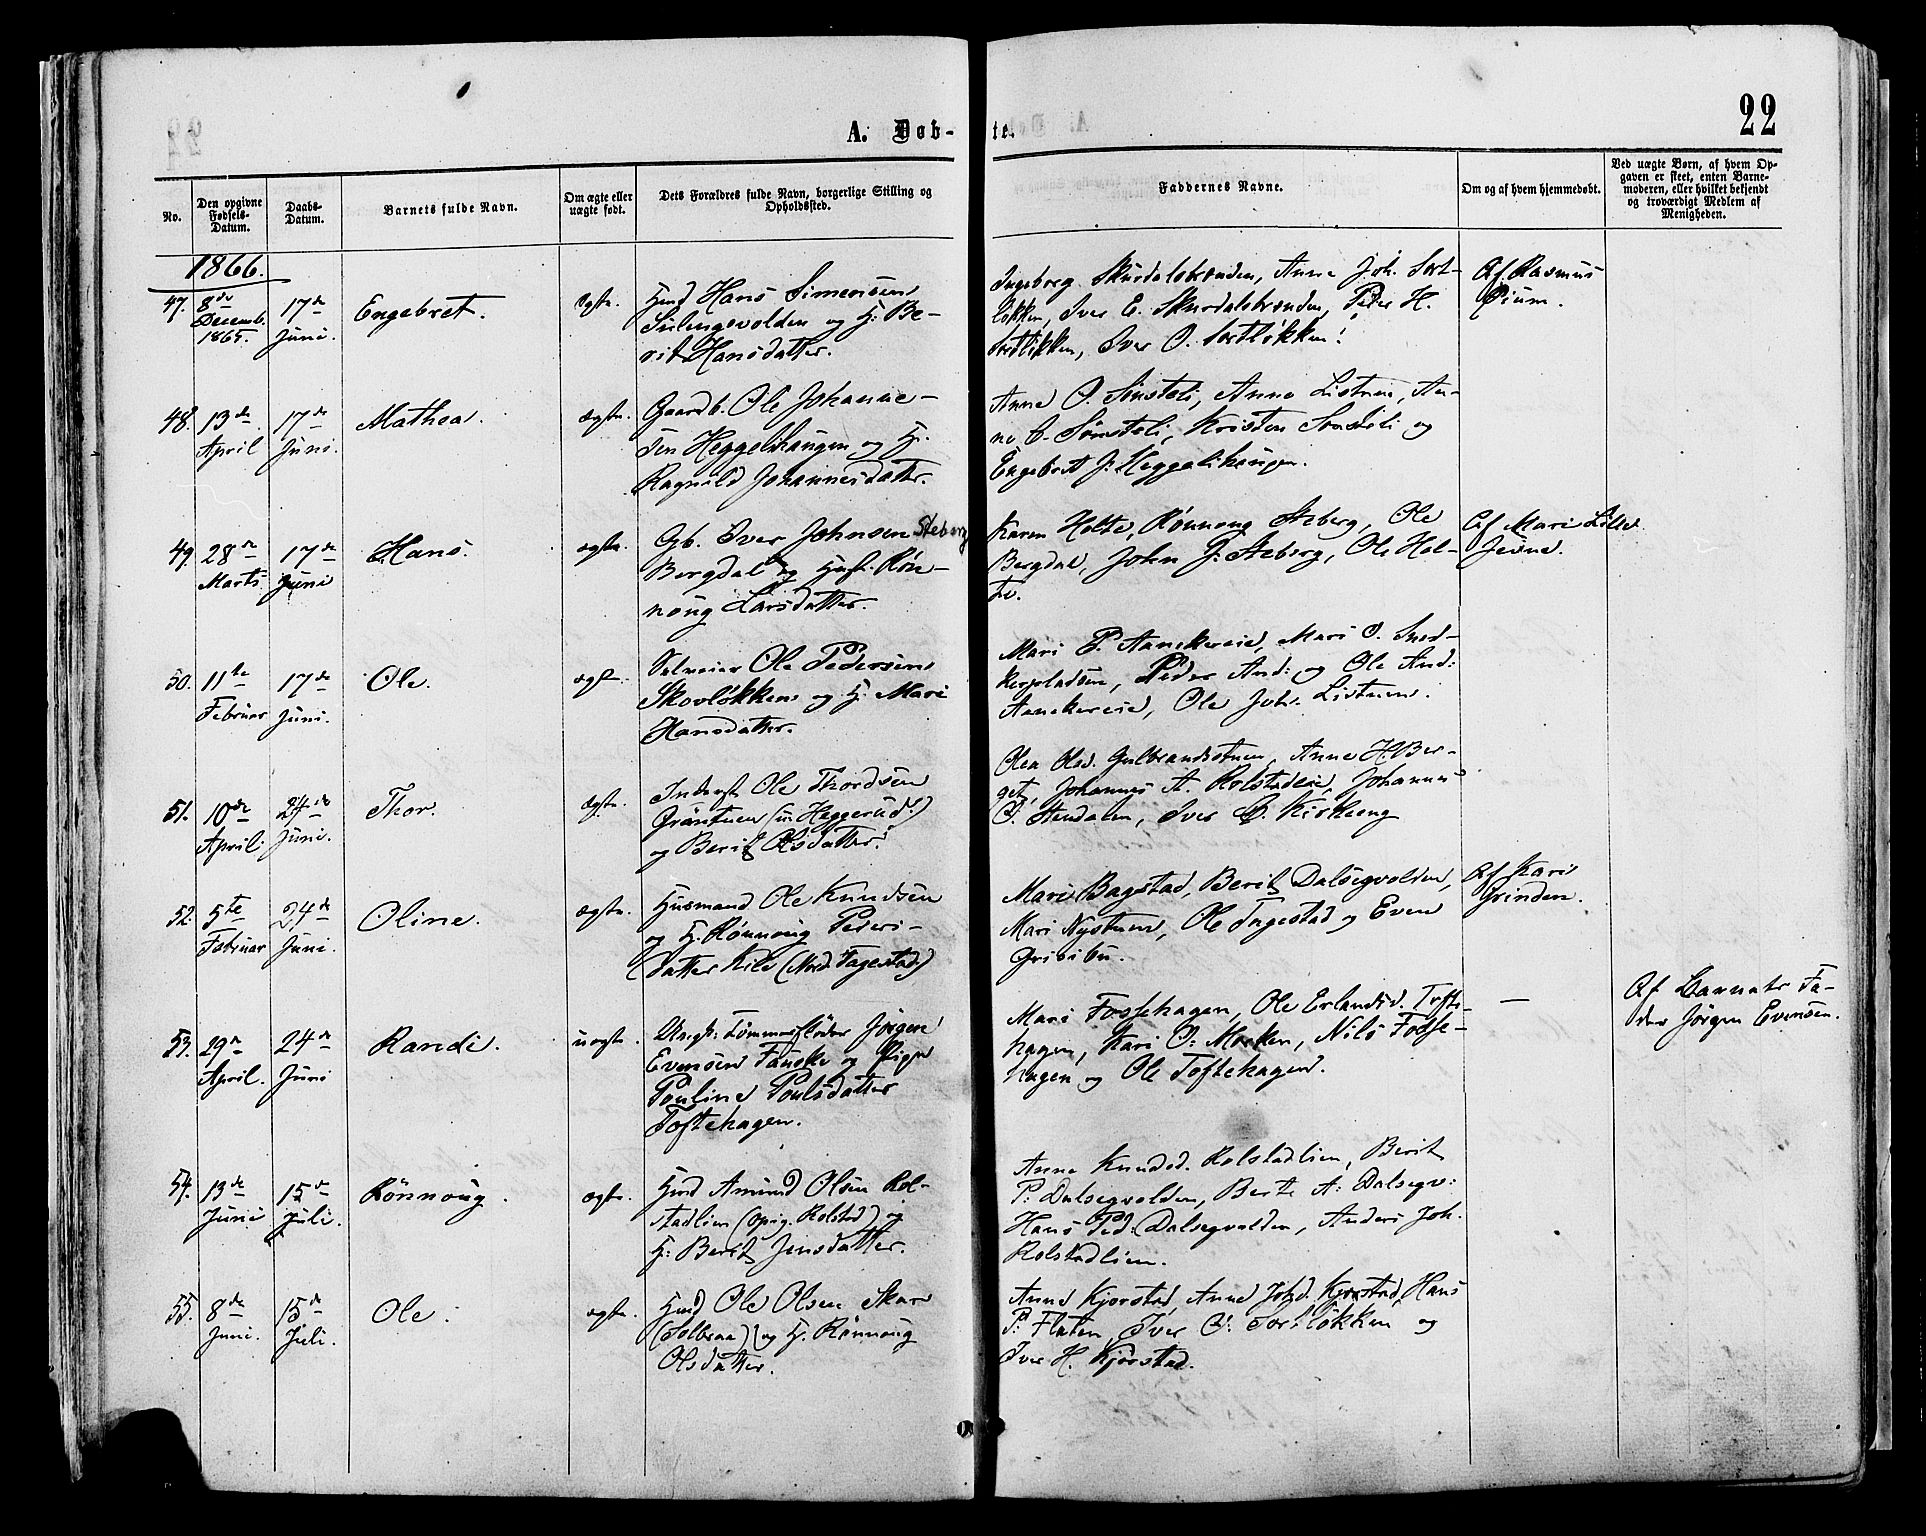 22
A. Døb-
te.
No.
Den opgivne Fødsels-Datum.
Daabs-Datum.
Barnets fulde Navn.
Om ægte eller uægte født.
Dets Forældres fulde Navn, borgerlige Stilling og Opholdssted.
Faddernes Navne.
Om og af hvem hjemmedøbt.
Ved uægte Børn, af hvem Opgaven er skeet, enten Barnemoderen, eller hvilket bekjendt og troværdigt Medlem af Menigheden.
1866.
47. 8de Decemb. 1865.
17de Juni.
Engebret.
ægte.
Hmd Hans Simensen
Sulengsvolden og H: Be-
rit Hansdatter.
Ingeborg Skurdalsbrænden, Anne Joh. Sort-
løkken, Iver E. Skurdalsbrænden, Peder H.
Sortløkken, Iver O. Sortløkken!
Af Rasmus
Pium.
48. 13de April
17de Juni.
Mathea.
ægte.
Gaardb. Ole Johanne-
sen Heggelihaugen og H.
Ragnild Johannesdatter.
Anne O. Sønsteli, Anne Listuen, An-
ne O. Sønsteli, Kristen Sønsteli og
Engebret J: Heggelihaugen.
49. 28de Marts.
17de Juni
Hans.
ægte.
Gb. Iver Johnsen Steberg
Bergdal og Hust. Røn-
noug Larsdatter.
Karen Holte, Rønnoug Steberg, Ole
Bergdal, John J: Steberg, Ole Hol-
te.
Af Mari Lille
Jevne.
50. 11te Februar
17de Juni.
Ole.
ægte.
Selveier Ole Pedersen
Skovløkken og H. Mari
Hansdatter.
Mari P. Aanekereie, Mari O. Sned-
kerpladsen, Peder And: og Ole And:
Aanekereie, Ole Joh. Listuen.
51. 10de April.
24de Juni.
Thor.
ægte.
Inderst Ole Thordsen
Grøntuen (u. Heggerud)
og Berit Olsdatter.
Olea Olsd. Gulbrandsstuen, Anne H. Ber-
get, Johannes A. Rolstadeie, Johannes
O. Stendalen, Iver O. Kirkeeng
52. 5te Februar
24de Juni.
Oline.
ægte.
Husmand Ole Knudsen
og H. Rønnoug Peders-
datter Kile (Nord. Fagestad.)
Mari Bagstad, Berit Dalsegvolden,
Mari Nystuen, Ole Fagestad og Even
Gribibu.
Af Kari
Grinden.
53. 29de April.
24de Juni
Randi.
uægte.
Ungk: Tømmerfløder Jørgen
Evensen Fauske og Pige
Pouline Poulsdatter
Toftehagen.
Mari Fossehagen, Ole Erlandsd. Tofte-
hagen, Kari O: Morken, Nils Fosse-
hagen og Ole Toftehagen.
—
Af Barnets Fa-
der Jørgen Evensen.
54. 13de Juni
15de Juli.
Rønnoug.
ægte.
Hmd Amund Olsen Rol-
stadlien (opig. Rolstad) og
H: Berit Jensdatter.
Anne Knudsd. Rolstadlien, Berit
P: Dalsegvolden, Berte A: Dalsegv:
Hans Ped: Dalsegvolden, Anders Joh.
Rolstadlien.
55. 8de Juni.
15de Juli.
Ole.
ægte.
Hmd Ole Olsen Skar
(Solbraa) og H. Rønnoug
Olsdatter.
Anne Kjorstad, Anne Johd. Kjorstad, Hans
P: Flaten, Iver O: Sortløkken og
Iver H. Kjorstad.